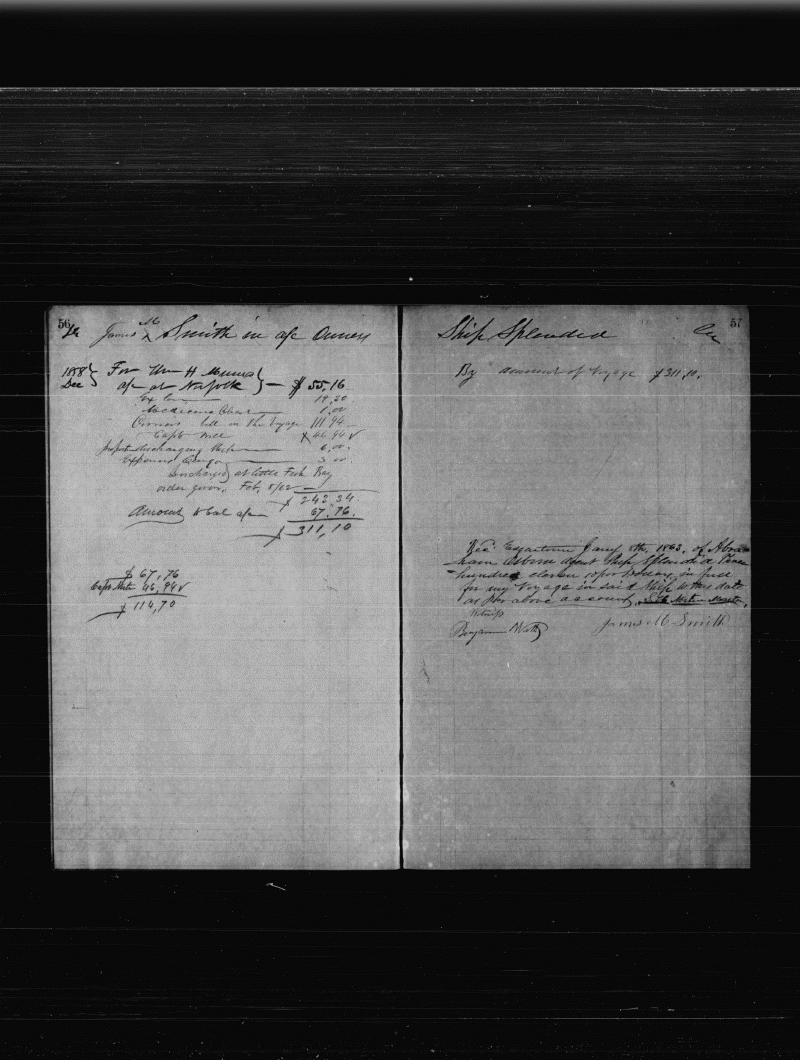 56
Dr James M Smith in a/c Owners
1858 } For Wm H
Dec } a/c at } — $ 55,16
19,20
Medicine Chest — 1,00
Owners bill in the Voyage 111 94
Capt — X 46 94 ✓
discharging — 6,00
3 00
at Cottle Fish Bay
order given, Feb, 8/62 —
$ 243.34
Amount to bal a/c — 67,76.
$ 311,10
$ 67,76
Capts 46,94 ✓
$ 114,70
57
Ship Splendid Cr
By amount of Voyage $ 311,10.
Rec'd Edgartown Jany 8th, 1863, of Abra-
ham Osborn agent Ship Splendid Three
hundred eleven 10/100 Dollars, in full
for my Voyage in said Ship to this date
as per above account,
Witness
Benjamin James M Smith